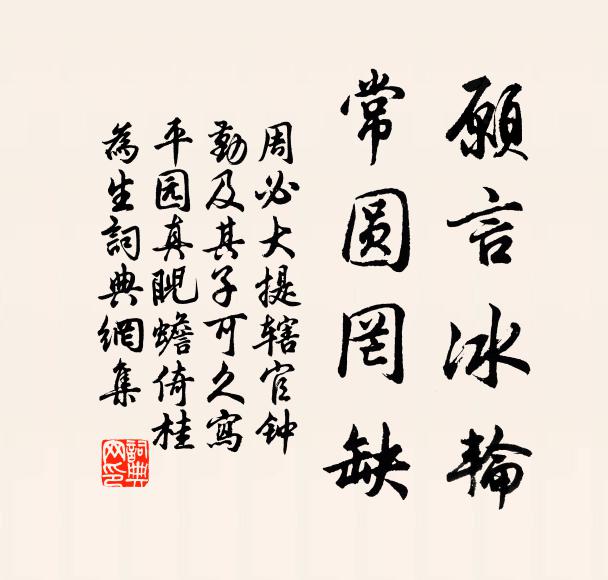 願言冰輪
常圆罔缺
周必大提辖官钟
勤及其子可久寫
平园真睨蟾倚桂
為生詞典網集
詞典
网印